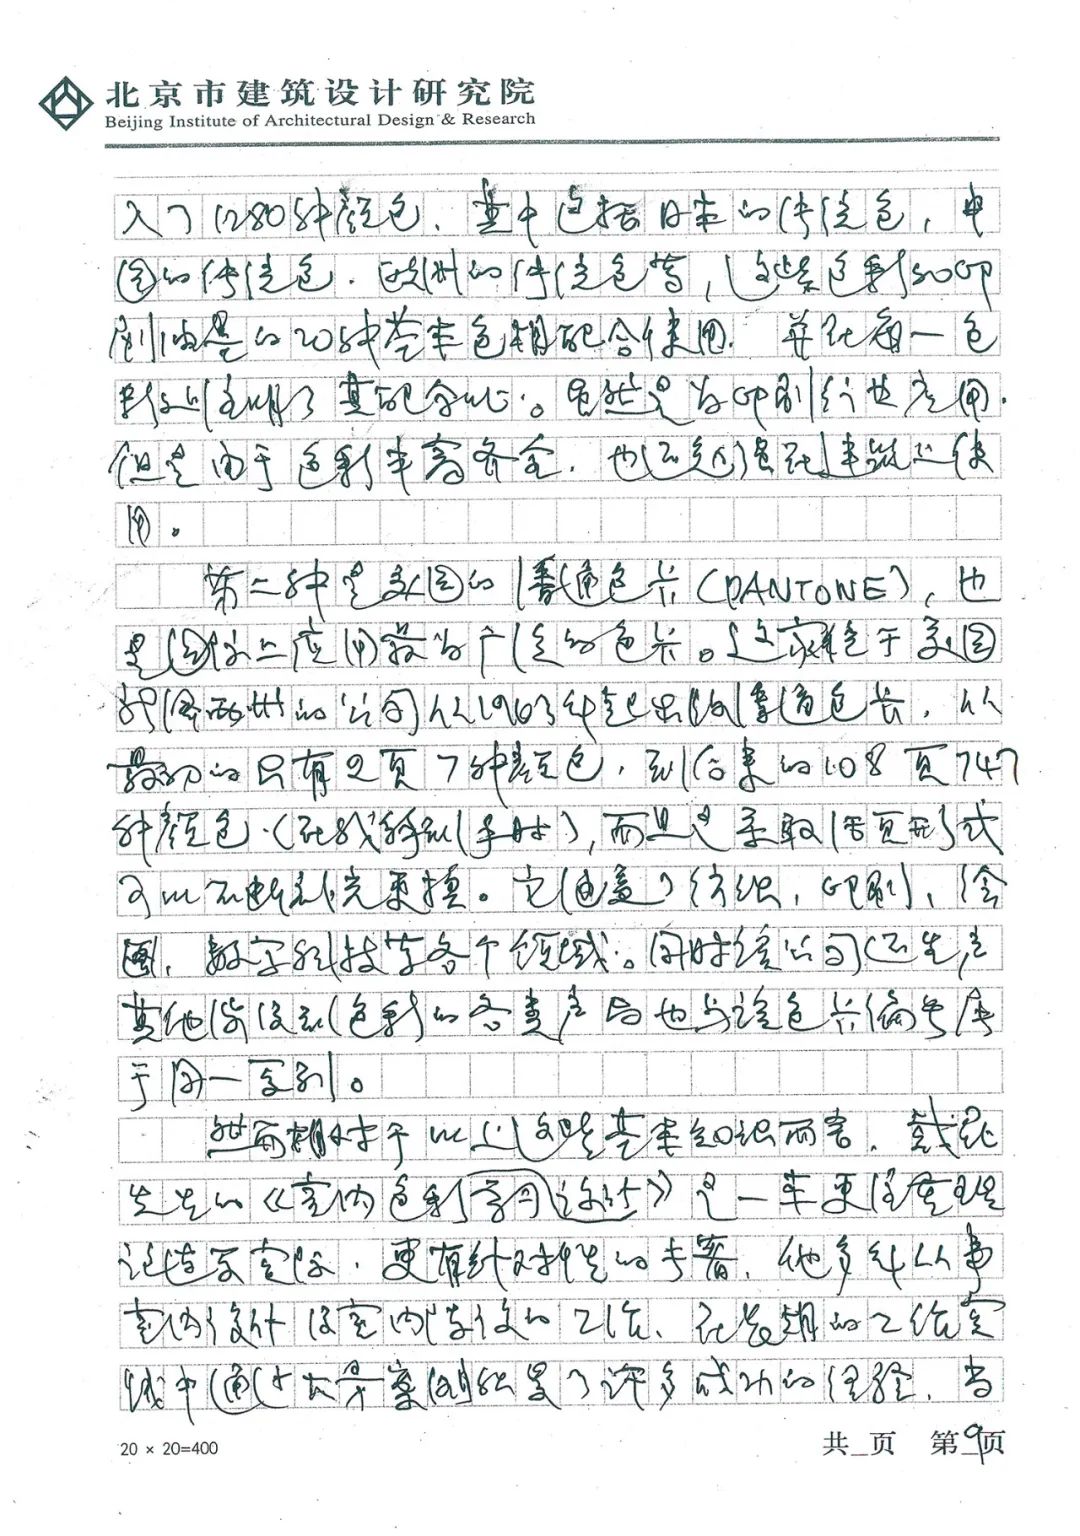 北京市建筑设计研究院
Beijing Institute of Architectural Design & Research
入了1280种颜色、其中包括日本的传统色，中
国的传统色．欧洲的传统色等，这些色彩和印
刷油墨的20种基本色相配合使用．并在每一色
片上注明了其配合比。虽然是为印刷行业应用．
但是由于色彩丰富齐全．也不勉强在建筑上使
用。
第二种是美国的普通色卡（PANTONE），也
是国际上应用最为广泛的色卡。这家住于美国
新泽西州的公司从1963年起出版普通色卡，从
最初的只有2页7种颜色，到后来的108页747
种颜色．（在我得到手时），而且是采取活页形式
可以不断补充更换。它涵盖了纺织，印刷、绘
图、数字科技等各个领域。同时该公司还生产
其他涉及到色彩的各类产品也与该色卡编号属
于同一系列。
然而相对于以上这些基本知识而言．戴琨
先生的《室内色彩学习设计》是一本更注重理
论结合实际．更有针对性的专著．他多年从事
室内设计及室内装修的工作、在长期的工作实
践中通过大量案例积累了许多成功的经验．当
20 × 20=400
共_页 第9页